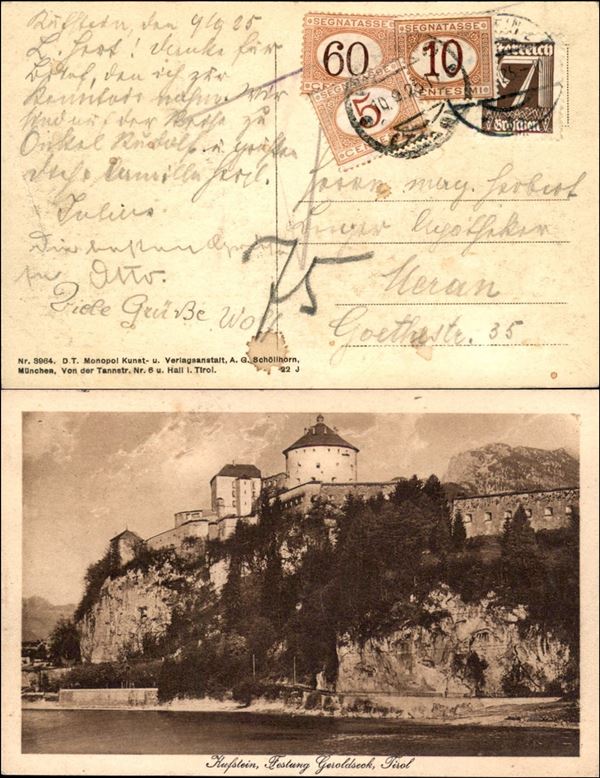 Kufstein, den 9/9 25
L. Herbert! Danke für
Brief, den ich zur
Kenntnis nahm. Wir
sind auf der Reise zu
Onkel Rudolf u. grüßen
Dich, Camilla herzl.
Julius
Die besten Grüße
Otto.
Viele Grüße Wolf
SEGNATASSE
60
SEGNATASSE
10
CENTESIMI
5
10.9.25
Österreich
7
Groschen
Herrn mag. Herbert
Unger Apotheker
Meran
Goethestr. 35
75
Nr. 3964. D.T. Monopol Kunst- u. Verlagsanstalt, A. G. Schöllhorn,
München, Von der Tannstr. Nr. 6 u. Hall i. Tirol. 22 J
Kufstein, Festung Geroldseck, Tirol